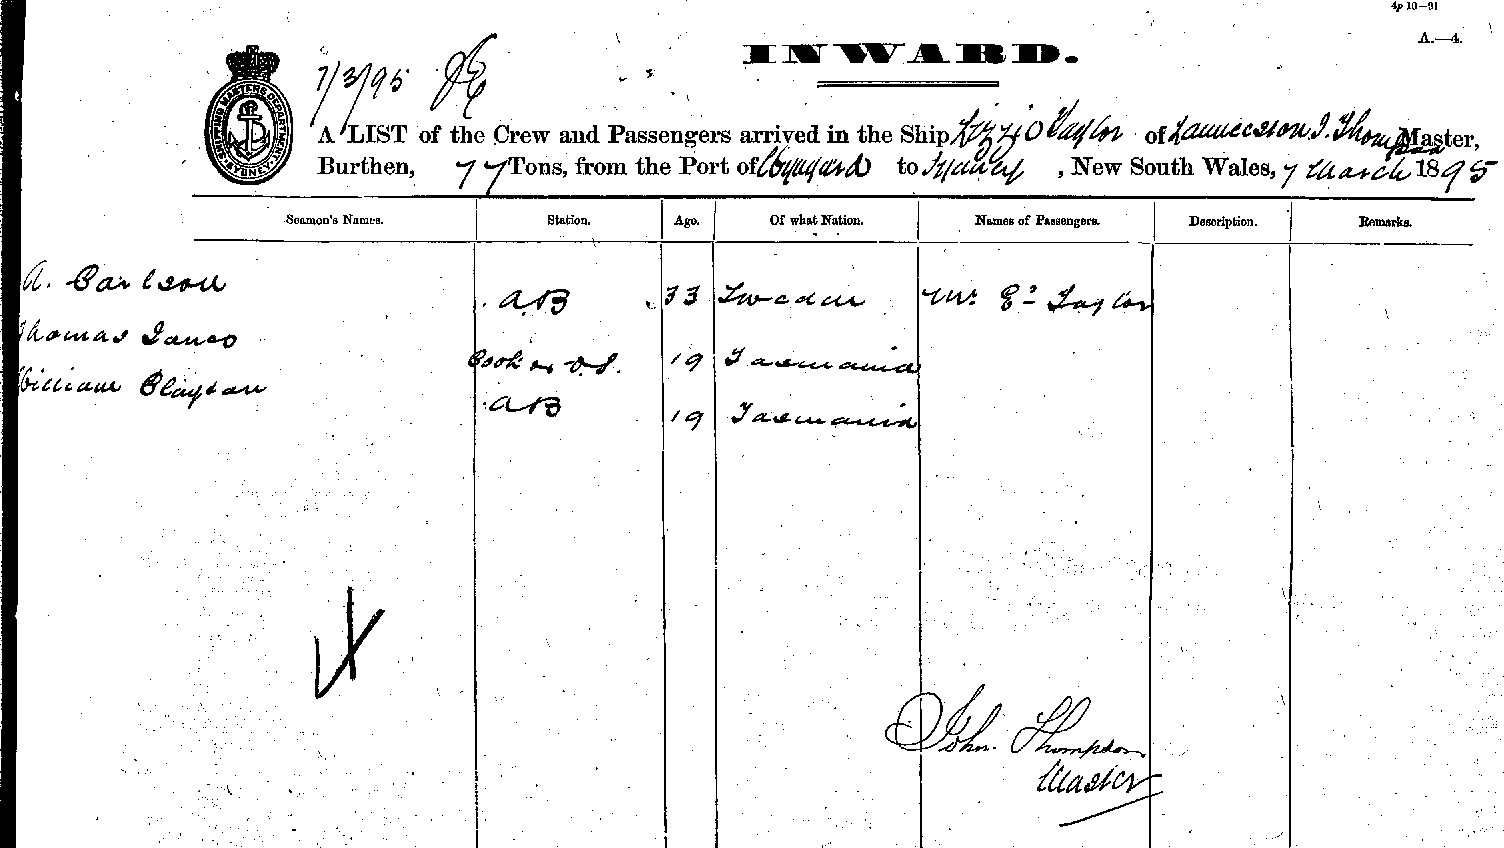 4p 10—91
A.—4.
INWARD.
7/3/95
SHIPPING MASTERS DEPARTMENT SYDNEY
A LIST of the Crew and Passengers arrived in the Ship Lizzie Taylor of Launceston J. Thompson Master,
Burthen, 77 Tons, from the Port of to Sydney, New South Wales, 7 March 1895
Seamen's Names. Station. Age. Of what Nation. Names of Passengers. Description. Remarks.
A. Carlson AB 33 Sweden Mr. Es Taylor
Thomas Cook & O.S. 19 Tasmania
William Clayton AB 19 Tasmania
John Thompson
Master